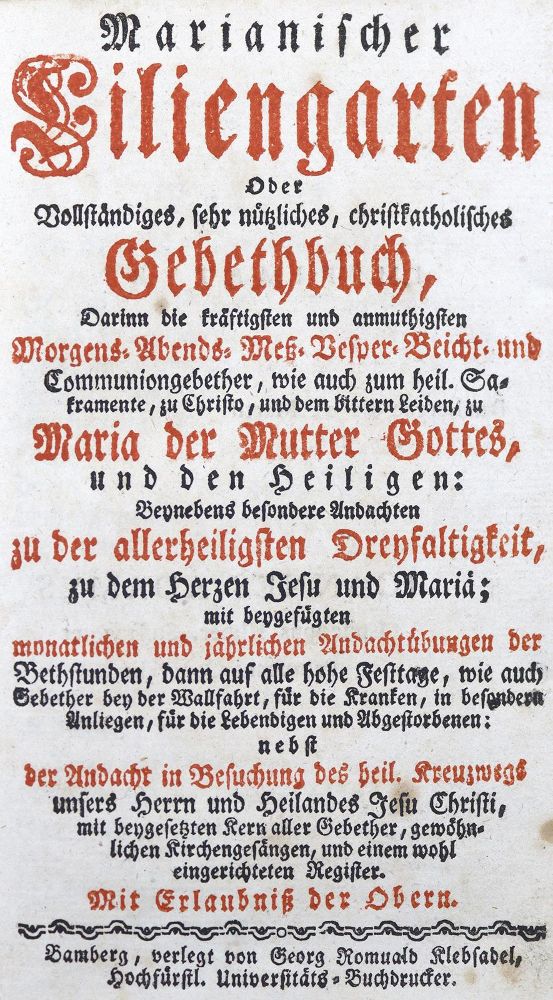 Marianischer
Liliengarten
Oder
Vollständiges, sehr nützliches, christkatholisches
Gebethbuch,
Darinn die kräftigsten und anmuthigsten
Morgens- Abends- Meß- Vesper- Beicht- und
Communiongebether, wie auch zum heil. Sa-
kramente, zu Christo, und dem bittern Leiden, zu
Maria der Mutter Gottes,
und den Heiligen:
Beynebens besondere Andachten
zu der allerheiligsten Dreyfaltigkeit,
zu dem Herzen Jesu und Mariä;
mit beygefügten
monatlichen und jährlichen Andachtübungen der
Bethstunden, dann auf alle hohe Festtage, wie auch
Gebether bey der Wallfahrt, für die Kranken, in besondern
Anliegen, für die Lebendigen und Abgestorbenen:
nebst
der Andacht in Besuchung des heil. Kreuzwegs
unsers Herrn und Heilandes Jesu Christi,
mit beygesetzten Kern aller Gebether, gewöhn-
lichen Kirchengesängen, und einem wohl
eingerichteten Register.
Mit Erlaubniß der Obern.
Bamberg, verlegt von Georg Romuald Klebsadel,
Hochfürstl. Universitäts-Buchdrucker.